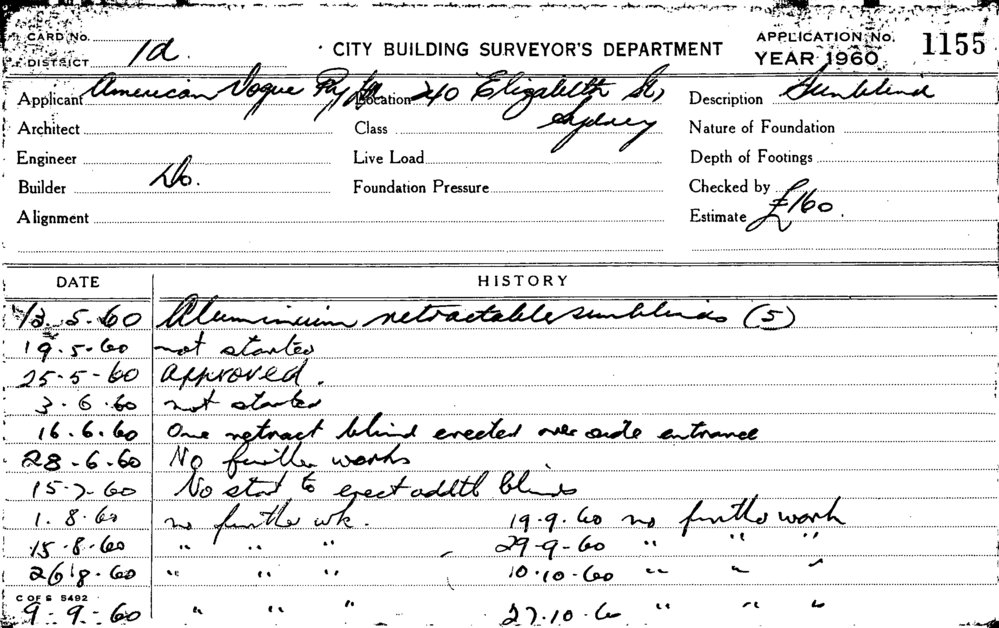 CARD No. APPLICATION No. 1155
DISTRICT 1d. CITY BUILDING SURVEYOR'S DEPARTMENT YEAR 1960
Applicant American Vogue Pty Ld Location 240 Elizabeth St, Description Sunblind
Architect Class Sydney Nature of Foundation
Engineer Live Load Depth of Footings
Builder Do. Foundation Pressure Checked by
Alignment Estimate £160.
DATE HISTORY
13.5.60 Aluminium retractable sunblinds (5)
19.5.60 not started
25-5-60 approved.
3.6.60 not started
16.6.60 One retract blind erected over side entrance
28-6.60 No further works
15-7-60 No start to erect addtl blinds
1.8.60 no further wk. 19.9.60 no further work
15.8.60 " " " 29-9-60 " " "
26.8.60 " " " 10.10.60 " " "
C OF S 5492
9-9-60 " " " 27.10.60 " " "